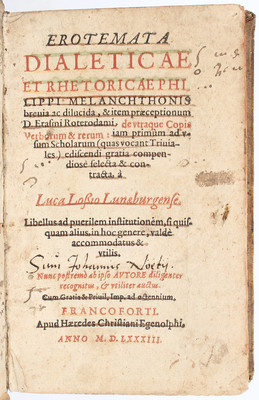 EROTEMATA
DIALETICAE
ET RHETORICAE PHI
LIPPI MELANCHTHONIS
breuia ac dilucida, & item præceptionum
D. Erasmi Roterodami, de vtraque Copia
Verborum & rerum: iam primùm ad v-
sum Scholarum (quas vocant Triuia-
les) ediscendi gratia compen-
diosè selecta & con-
tracta. à
Luca Loßio Lunæburgense.
Libellus ad puerilem institutionem, si quis-
quam alius, in hoc genere, valdè
accommodatus &
vtilis.
Sum Johannis
Nunc postremò ab ipso AVTORE diligenter
recognitus, & vtiliter auctus.
Cum Gratia & Priuil, Imp. ad octennium.
FRANCOFORTI.
Apud Hæredes Christiani Egenolphi,
ANNO M. D. LXXXIII.